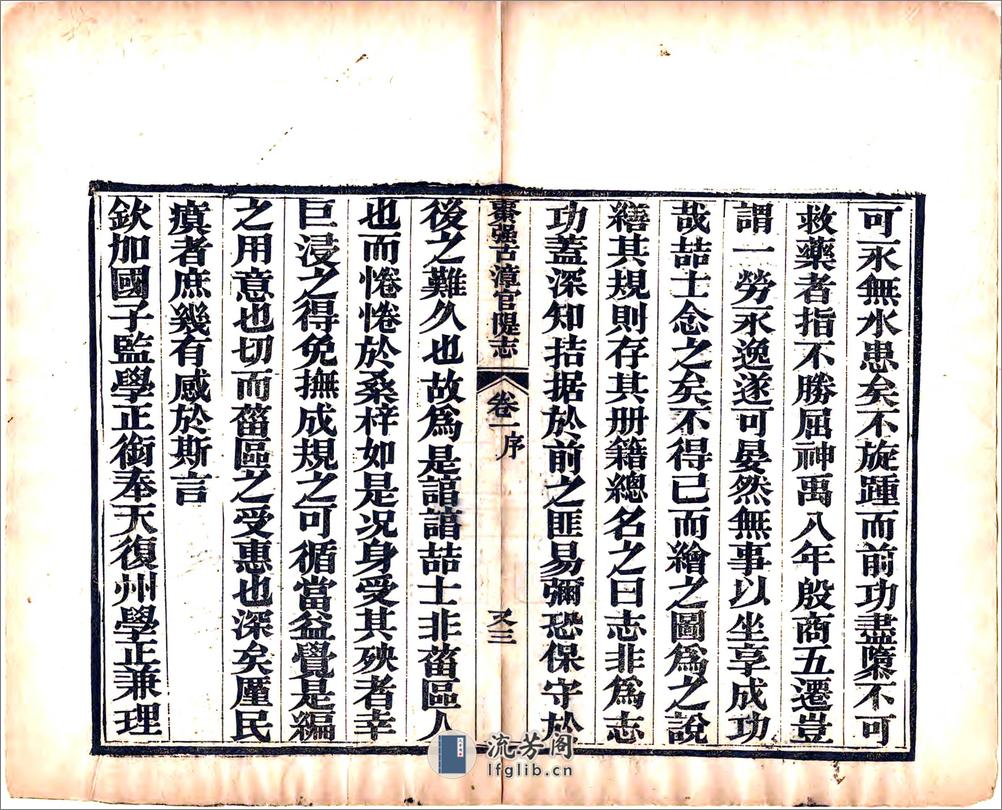 可永無水患矣不旋踵而前功盡隳不可
救藥者指不勝屈神禹八年殷商五遷豈
謂一勞永逸遂可晏然無事以坐享成功
哉喆士念之矣不得已而繪之圖爲之說
繕其規則存其册籍總名之曰志非爲志
功蓋深知拮据於前之匪易彌恐保守於
棗强古漳官隄志 卷一序 又三
後之難久也故爲是喆士非菑區人
也而惓惓於桑梓如是况身受其殃者幸
巨浸之得免撫成規之可循當益覺是編
之用意也切而菑區之受惠也深矣厪民
瘼者庶幾有感於斯言
欽加國子監學正銜奉天復州學正兼理
流芳阁
lfglib.cn